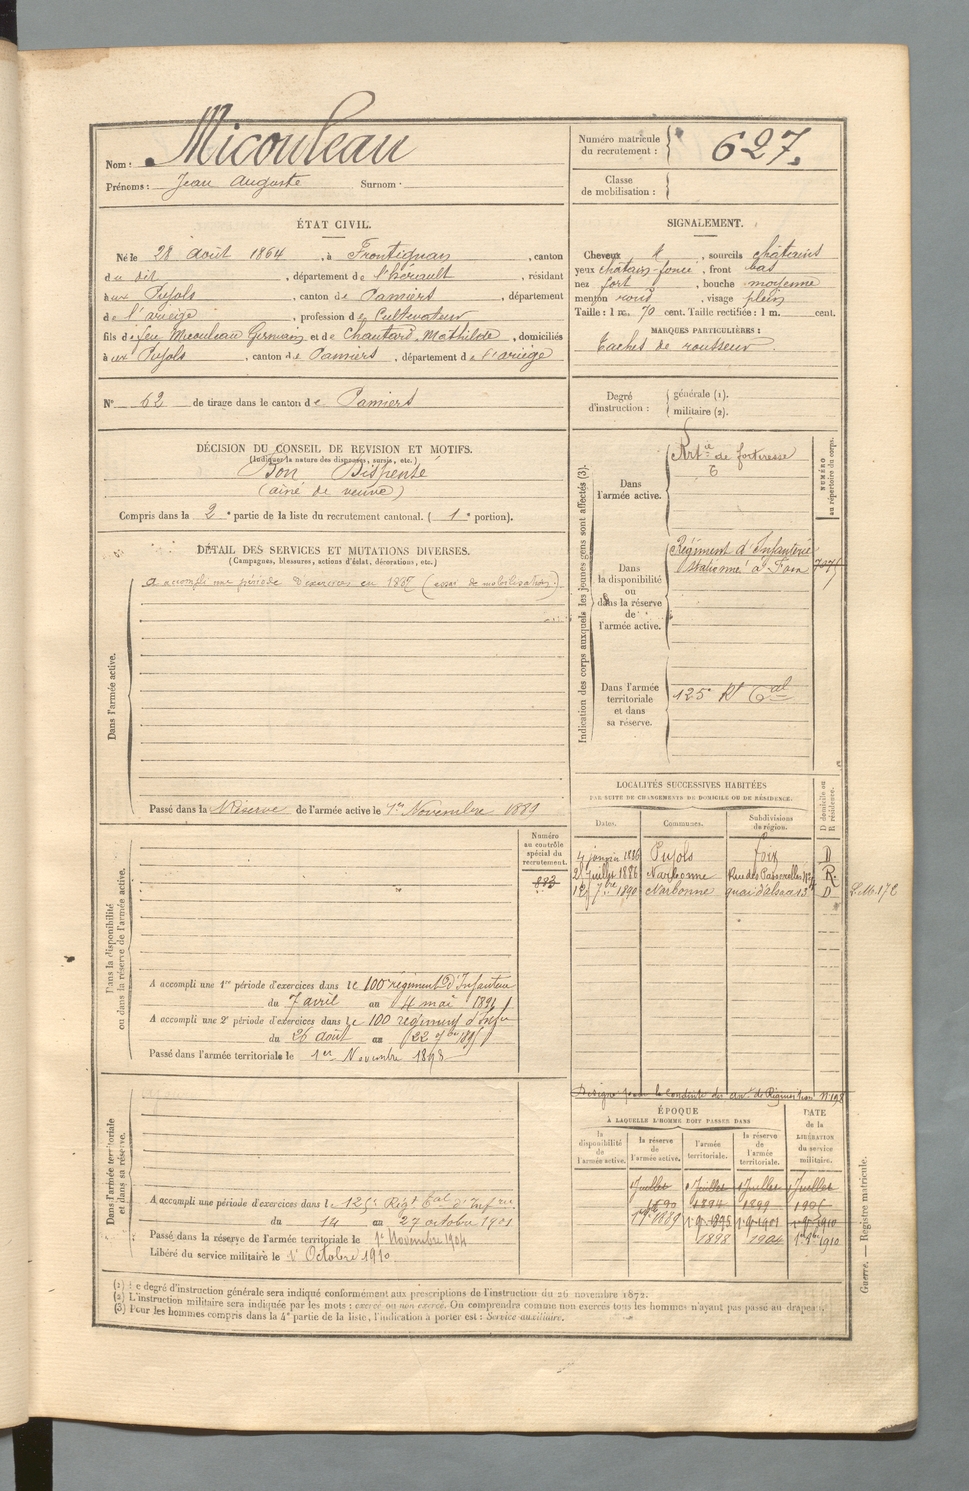 Nom : Micouleau
Prénoms : Jean Auguste Surnom :
Numéro matricule du recrutement : 627.
Classe de mobilisation :
ÉTAT CIVIL.
Né le 28 août 1864, à Frontignan, canton
du dit, département de l'hérault, résidant
aux Pujols, canton de Pamiers, département
de l'ariège, profession de Cultivateur
fils de feu Micouleau Germain et de Chautard Mathilde, domiciliés
aux Pujols, canton de Pamiers, département de l'ariège
SIGNALEMENT.
Cheveux et, sourcils châtains
yeux châtain-foncé, front bas
nez fort, bouche moyenne
menton rond, visage plein
Taille : 1 m. 70 cent. Taille rectifiée : 1 m. cent.
MARQUES PARTICULIÈRES :
Taches de rousseur
N° 62 de tirage dans le canton de Pamiers
Degré d'instruction : générale (1).
militaire (2).
DÉCISION DU CONSEIL DE REVISION ET MOTIFS.
(Indiquer la nature des dispenses, sursis, etc.)
Bon Dispensé
(aîné de veuve)
Compris dans la 2e partie de la liste du recrutement cantonal. (1e portion).
DÉTAIL DES SERVICES ET MUTATIONS DIVERSES.
(Campagnes, blessures, actions d'éclat, décorations, etc.)
Dans l'armée active.
a accompli une période d'exercices en 1887 (essai de mobilisation.)
Passé dans la Réserve de l'armée active le 1er Novembre 1889
Indication des corps auxquels les jeunes gens sont affectés (3).
NUMÉRO au répertoire du corps.
Dans l'armée active.
Artie de forteresse
Dans la disponibilité ou dans la réserve de l'armée active.
Régiment d'Infanterie
stationné à Foix
Dans l'armée territoriale et dans sa réserve.
125e Rt Tal
Dans la disponibilité ou dans la réserve de l'armée active.
Numéro au contrôle spécial du recrutement.
883
A accompli une 1re période d'exercices dans le 100 régiment d'Infanterie
du 7 avril au 4 mai 1891
A accompli une 2e période d'exercices dans le 100 régiment d'Infie
du 26 août au 22 7bre 1895
Passé dans l'armée territoriale le 1er Novembre 1898
LOCALITÉS SUCCESSIVES HABITÉES
PAR SUITE DE CHANGEMENTS DE DOMICILE OU DE RÉSIDENCE.
D domicile ou R résidence.
Dates. Communes. Subdivisions de région.
4 janvier 1886 Pujols foix D
21 juillet 1886 Narbonne Rue des Passerelles R.
12 7bre 1890 Narbonne quai d'alsace 13 D
Dans l'armée territoriale et dans sa réserve.
A accompli une période d'exercices dans le 125e Régt Tal d'Infrie
du 14 au 27 octobre 1901
Passé dans la réserve de l'armée territoriale le 1er Novembre 1904
Libéré du service militaire le 1er Octobre 1910
ÉPOQUE
À LAQUELLE L'HOMME DOIT PASSER DANS
la disponibilité de l'armée active.
la réserve de l'armée active.
l'armée territoriale.
la réserve de l'armée territoriale.
DATE de la LIBÉRATION du service militaire.
Juillet Juillet Juillet Juillet
1890 1894 1899
1889 1895 1901 1910
1898 1904 1910
(1) Le degré d'instruction générale sera indiqué conformément aux prescriptions de l'instruction du 26 novembre 1872.
(2) L'instruction militaire sera indiquée par les mots : exercé ou non exercé. On comprendra comme non exercés tous les hommes n'ayant pas passé au drapeau.
(3) Pour les hommes compris dans la 4e partie de la liste, l'indication à porter est : Service auxiliaire.
Guerre. — Registre matricule.